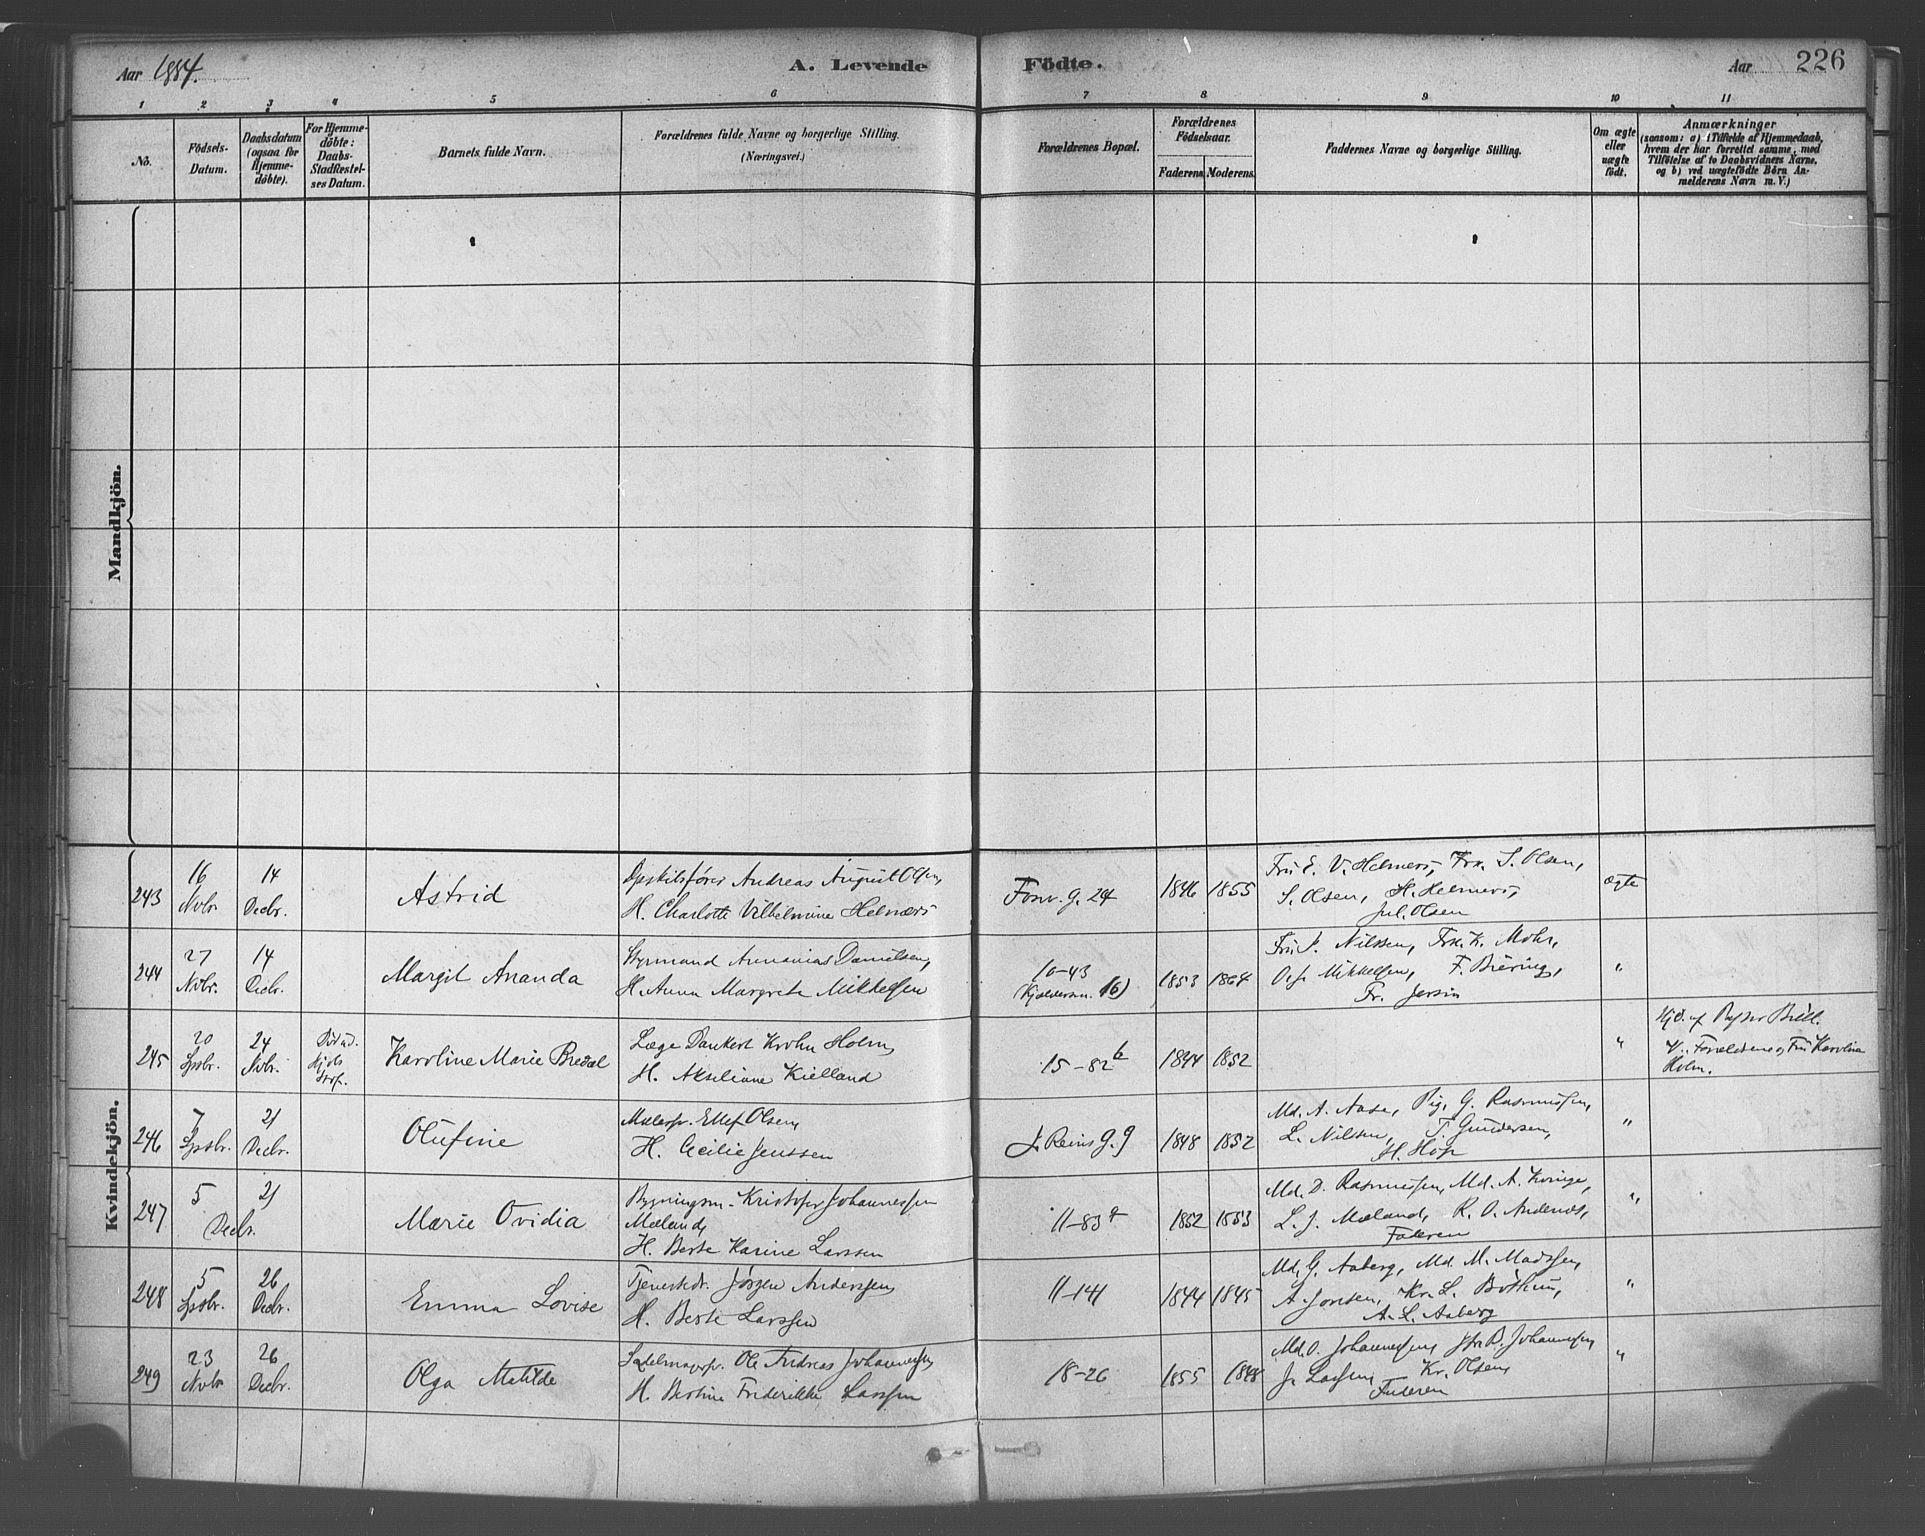 Aar 1884.
A. Levende Födte.
Aar 226
1 2 3 4 5 6 7 8 9 10 11
No.
Födsels-Datum.
Daabsdatum (ogsaa for Hjemme-döbte).
For Hjemme-döbte: Daabs-Stadfæstel-ses Datum.
Barnets fulde Navn.
Forældrenes fulde Navne og borgerlige Stilling.
(Næringsvei.)
Forældrenes Bopæl.
Forældrenes Födselsaar.
Faderens. Moderens.
Faddernes Navne og borgerlige Stilling.
Om ægte eller uægte födt.
Anmærkninger
(saasom: a) i Tilfælde af Hjemmedaab,
hvem der har forrettet samme, med
Tilföielse af to Daabsvidners Navne,
og b) ved uægtefödte Börn An-
melderens Navn m. V.)
Mandkjön.
Kvindekjön.
243 16 Novbr. 14 Decbr. Astrid
Andreas August Olsen,
H. Charlotte Vilhelmine Helmers
Fosw. g. 24 1846 1855
Fru E. V. Helmers, Frk. S. Olsen,
S. Olsen, H. Helmers,
Jul. Olsen
ægte
244 27 Novbr. 14 Decbr. Margit Ananda
Styrmand Annanias Danielsen,
H. Anna Margrete Mikkelsen
10-43
(Kjeldersm. 16) 1853 1864
Nilssen, Frk. K. Mohr,
Mikkelsen, F. Biering,
Fr. Jersin
"
245 20 Spbr. 24 Novbr. Karoline Marie Bredal
Læge Dankert Krohn Holm,
H. Akseliane Kielland
15-82 b 1844 1852
"
Hjd. af
V.: Forældrene, Fru Karoline
Holm.
246 7 Spbr. 21 Decbr. Olufine
Malersv. Ellef Olsen,
H. Cecilie Jenssen
Reins g. 9 1848 1852
Md. A. Aase, Pig. G. Rasmussen,
L. Nilsen, T. Gundersen,
H. Hope
"
247 5 21 Decbr. Marie Ovidia
Bygningsm. Kristofer Johannessen
Mæland,
H. Berte Karine Larssen
11-83 a 1852 1853
Md. D. Rasmussen, Md. A. Kvinge,
L. J. Mæland, R. O. Andenæs,
Faderen
"
248 5 Spbr. 26 Decbr. Emma Lovise
Tjenestedr. Jørgen Anderssen,
H. Berte Larssen
11-141 1844 1845
Md. G. Aaberg, Md. M. Madssen,
A. Joensen, Kr. L. Bothun,
A. L. Aaberg
"
249 23 Novbr 26 Decbr. Olga Matilde
Sadelmagersv. Ole Andreas Johannessen
H. Bertine Friderikke Larssen
18-26 1855 1848
Md. O. Johannessen, B. Johannessen,
J. Larssen, Kr. Olsen,
Faderen
"